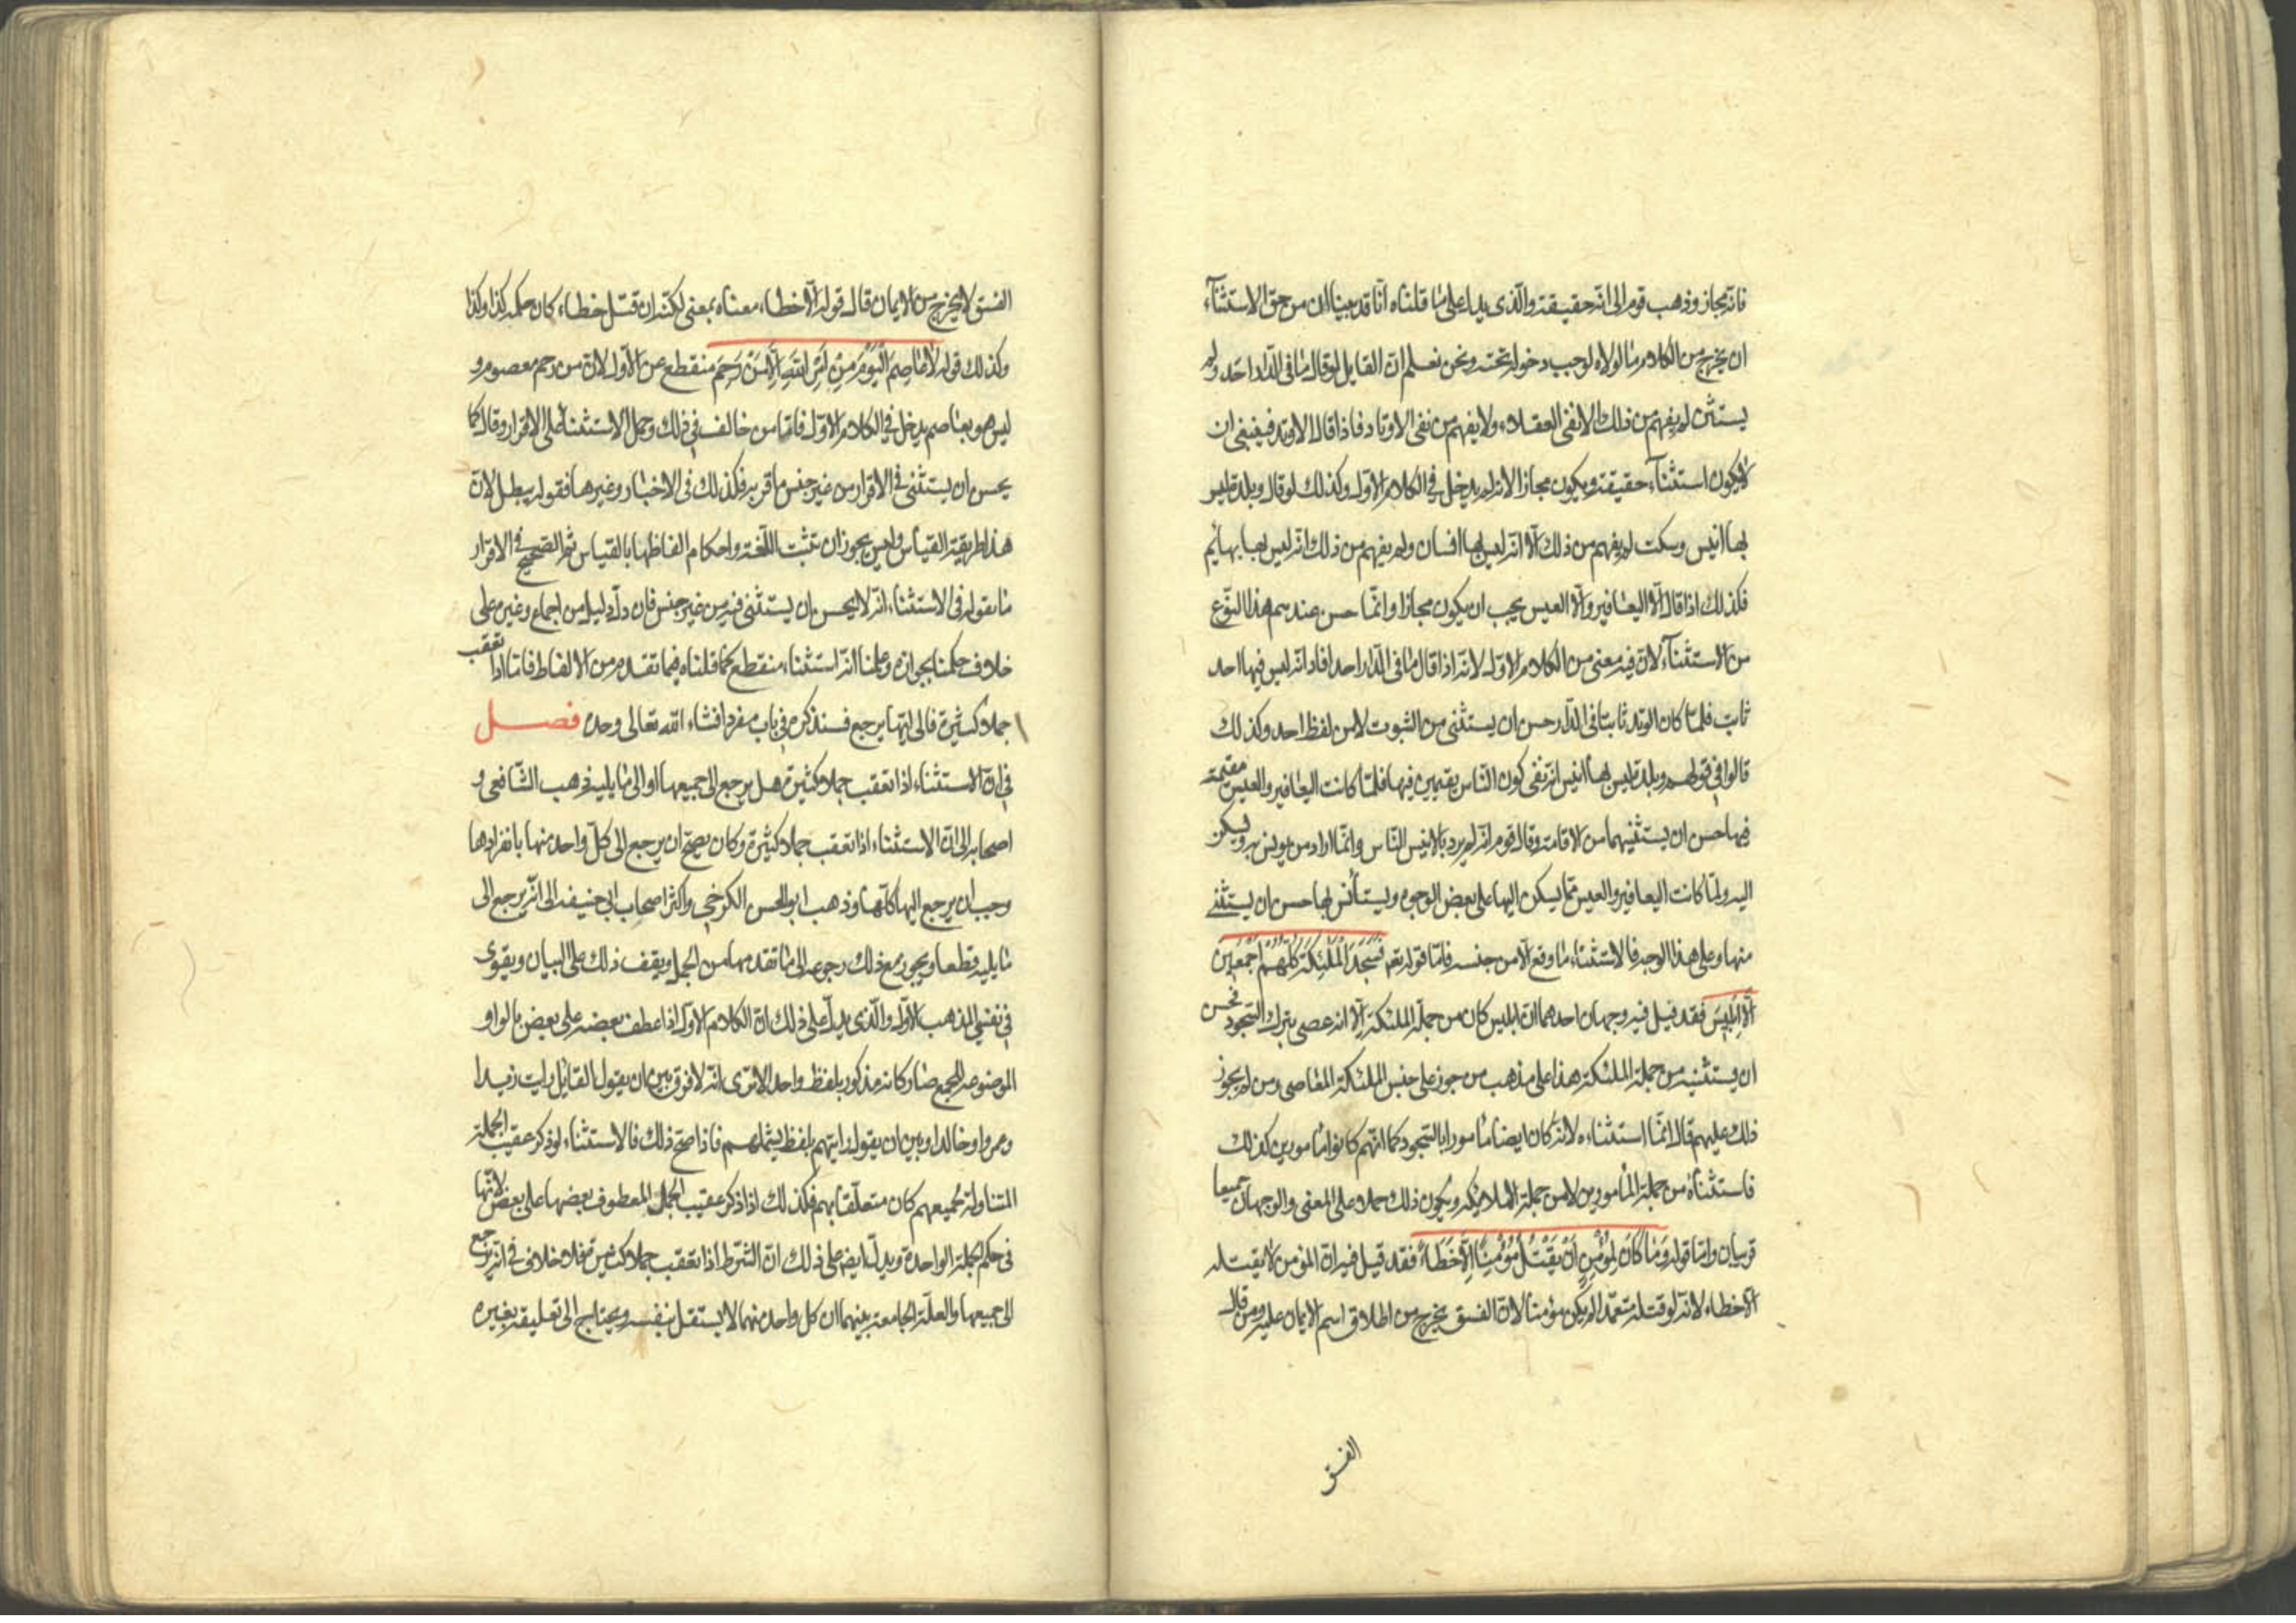 فانه مجاز وذهب قوم الى انه حقيقة والذى يدل على ما قلناه انا قد بينا ان من حق الاستثنآء
ان يخرج من الكلام ما لولاه لوجب دخوله تحته ونحن نعلم ان القايل لو قال ما فى الدار احد ولم
يستثن لم يفهم من ذلك الا نفى العقلاء ولا يفهم من نفى الاوتاد فاذا قال الا وتد فينبغى ان
لا يكون استثنآء حقيقة ويكون مجازا لانه لم يدخل فى الكلام الاول وكذلك لو قال وبلدة ليس
بها انيس وسكت لم يفهم من ذلك الا انه ليس بها انسان ولم يفهم من ذلك انه ليس بها بهايم
فكذلك اذا قال الا اليعافير والا العيس يجب ان يكون مجازا وانما حسن عندهم هذا النوع
من الاستثنآء لان فيه معنى من الكلام الاول لانه اذا قال ما فى الدار احد افاد انه ليس فيها احد
ثابت فلما كان الوتد ثابتا فى الدار حسن ان يستثنى من الثبوت لا من لفظ احد وكذلك
قالوا فى قولهم وبلدة ليس بها انيس انه نفى كون الناس مقيمين فيها فلما كانت اليعافير والعيس مقيمة
فيها حسن ان يستثنيهما من الاقامة وقال قوم انه لم يرد بالانيس الناس وانما اراد من يونس به ويسكن
اليه ولما كانت اليعافير والعيس مما يسكن اليها على بعض الوجوه ويستأنس بها حسن ان يستثنى
منها وعلى هذا الوجه فالاستثناء ما وقع الا من جنسه فاما قوله تعه فَسَجَدَ الْمَلٰئِكَةُ كُلُّهُمْ اَجْمَعِينَ
اِلَّا اِبْلِيسَ فقد قيل فيه وجهان احدهما ان ابليس كان من جملة الملئكة الا انه عصى بترك السجود فحسن
ان يستثنيه من جملة الملئكة هذا على مذهب من جوز على جنس الملئكة المعاصى ومن لم يجوز
ذلك عليهم قال انما استثناءه لانه كان ايضا مامورا بالسجود كما انهم كانوا مامورين كذلك
فاستثناه من جملة المأمورين لا من جملة الملائكة ويكون ذلك حملا على المعنى والوجهان جميعا
قريبان واما قوله وَمَا كَانَ لِمُؤْمِنٍ اَنْ يَقْتُلَ مُؤْمِنًا اِلَّا خَطَأً فقد قيل فيه ان المؤمن لا يقتله
الا خطاء لانه لو قتله متعمدا لم يكن مؤمنا لان الفسق يخرج من اطلاق اسم الايمان عليه ومن قال
الفسق
الفسق لا يخرج من الايمان قال قوله الا خطاء معناه بمعنى لكنه ان قتل خطاء كان حكمه كذا وكذا
وكذلك قوله لَا عَاصِمَ الْيَوْمَ مِنْ اَمْرِ اللّٰهِ اِلَّا مَنْ رَحِمَ منقطع عن الاول لان من رحم معصوم و
ليس هو بعاصم يدخل فى الكلام الاول فاما من خالف فى ذلك وحمل الاستثناء على الاقرار وقال كما
يحسن ان يستثنى فى الاقرار من غير جنس ما قر به فكذلك فى الاخبار وغيرها فقوله يبطل لان
هذا طريقة القياس وليس يجوز ان تثبت اللغة واحكام الفاظها بالقياس ثم الصحيح فى الاقرار
ما نقوله فى الاستثناء انه لا يحسن ان يستثنى فيه من غير جنس فان دل دليل من اجماع وغيره على
خلاف حكمنا بجوازه وعلمنا انه استثناء منقطع كما قلناه فيما تقدم من الالفاظ فاما اذا تعقب
جملا كثيرة فالى ايها يرجع فسنذكره فى باب مفرد انشاء الله تعالى وحده فصل
فى ان الاستثناء اذا تعقب جملا كثيرة هل يرجع الى جميعها او الى ما يليه ذهب الشافعى و
اصحابه الى ان الاستثناء اذا تعقب جملا كثيرة وكان يصح ان يرجع الى كل واحد منها بانفرادها
وجب ان يرجع اليها كلها وذهب ابو الحسن الكرخى واكثر اصحاب ابى حنيفة الى انه يرجع الى
ما يليه قطعا ويجوز مع ذلك رجوعه الى ما تقدمها من الجمل ويقف ذلك على البيان ويقوى
فى نفسى المذهب الاول والذى يدل على ذلك ان الكلام الاول اذا عطف بعضه على بعض بالواو
الموضوعه للجمع صار كانه مذكور بلفظ واحد الا ترى انه لا فرق بين ان يقول القائل رايت زيدا
وعمروا وخالدا وبين ان يقول رايتهم بلفظ يشملهم فاذا صح ذلك فالاستثناء لو ذكر عقيب الجملة
المتناولة لجميعهم كان متعلقا بهم فكذلك اذا ذكر عقيب الجمل المعطوف بعضها على بعض لانها
فى حكم الجملة الواحدة ويدل ايضا على ذلك ان الشرط اذا تعقب جملا كثيرة فلا خلاف فى انه يرجع
الى جميعها والعلة الجامعة بينهما ان كل واحد منهما لا يستقل بنفسه ويحتاج الى تعليقه بغيره